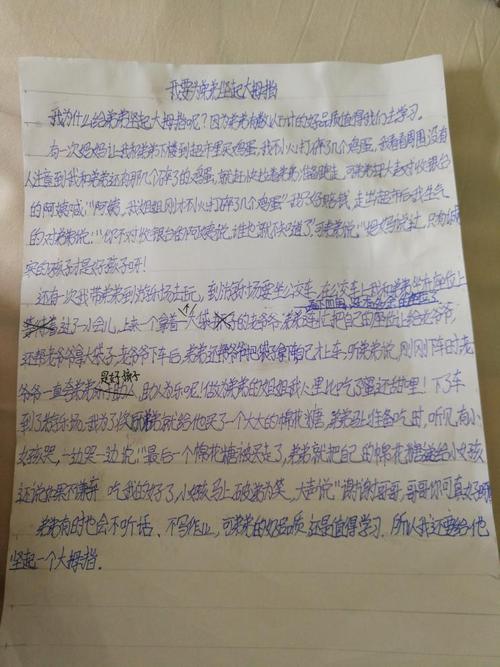 我要为弟弟竖起大拇指
我为什么给弟弟竖起大拇指呢？因为弟弟有数以万计的好品质值得我们去学习。
有一次妈妈让我和弟弟下楼到超市里买鸡蛋，我不小心打碎了几个鸡蛋，我看看周围没有
人注意到我和弟弟还有那几个碎了的鸡蛋，就赶快拉着弟弟准备走，可弟弟却大声对收银台
的阿姨喊：“阿姨，我姐姐刚才不小心打碎了几个鸡蛋”我只好赔钱，走出超市后我生气
的对弟弟说：“你不对收银台的阿姨说，谁也就不知道了，可弟弟说：“妈妈说过，只有诚
实的孩子才是好孩子呀！
还有一次我带弟弟到游乐场去玩，到游乐场要坐公交车，在公交车上我和弟弟坐在座位上
过了一小会儿，上来一个拿着一大袋的老爷爷，弟弟连忙把自己的座位让给老爷爷，
还帮老爷爷拿大袋子，老爷爷下车后，弟弟还帮爷爷把袋子拿，弟弟说，刚刚下车时老
爷爷一直夸弟弟是好孩子，助人为乐呢！做为弟弟的姐姐我心里比吃了蜜还甜里！下了车
到了游乐场，我为了奖励弟弟就给他买了一个大大的棉花糖，弟弟马上准备吃时，听见有小
女孩哭，一边哭一边说：“最后一个棉花糖被买走了，弟弟就把自己的棉花糖送给小女孩
还说如果不嫌弃吃我的好了，小女孩马上破涕为笑，大声说：“谢谢哥哥，哥哥你可真好啊
弟弟有时也会不听话、不写作业，可弟弟的好品质还是值得学习，所以我还要给他
竖起一个大拇指。